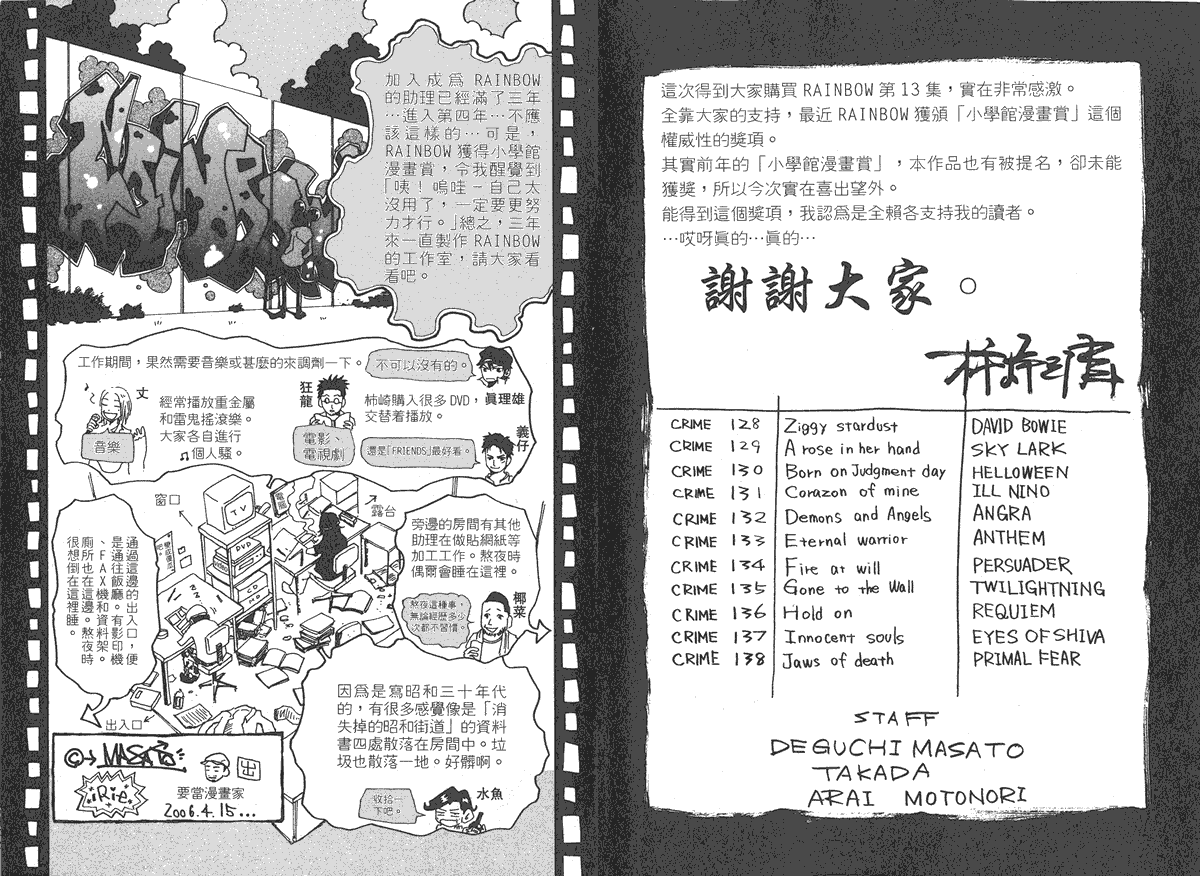 這次得到大家購買 RAINBOW 第 13 集，實在非常感激。
全靠大家的支持，最近 RAINBOW 獲頒「小學館漫畫賞」這個
權威性的獎項。
其實前年的「小學館漫畫賞」，本作品也有被提名，卻未能
獲獎，所以今次實在喜出望外。
能得到這個獎項，我認爲是全賴各支持我的讀者。
…哎呀眞的…眞的…
謝謝大家。
CRIME 128 Ziggy stardust DAVID BOWIE
CRIME 129 A rose in her hand SKY LARK
CRIME 130 Born on Judgment day HELLOWEEN
CRIME 131 Corazon of mine ILL NINO
CRIME 132 Demons and Angels ANGRA
CRIME 133 Eternal warrior ANTHEM
CRIME 134 Fire at will PERSUADER
CRIME 135 Gone to the Wall TWILIGHTNING
CRIME 136 Hold on REQUIEM
CRIME 137 Innocent souls EYES OF SHIVA
CRIME 138 Jaws of death PRIMAL FEAR
STAFF
DEGUCHI MASATO
TAKADA
ARAI MOTONORI
加入成爲 RAINBOW
的助理已經滿了三年
…進入第四年…不應
該這樣的…可是，
RAINBOW 獲得小學館
漫畫賞，令我醒覺到
「咦！嗚哇－自己太
沒用了，一定要更努
力才行。」總之，三年
來一直製作 RAINBOW
的工作室，請大家看
看吧。
工作期間，果然需要音樂或甚麼的來調劑一下。
不可以沒有的。
眞理雄
柿崎購入很多 DVD，
交替着播放。
狂龍
電影、
電視劇
義仔
還是「FRIENDS」最好看。
丈
經常播放重金屬
和雷鬼搖滾樂。
大家各自進行
♫個人騷。
音樂
窗口
TV
DVD
CD
電腦
露台
旁邊的房間有其他
助理在做貼網紙等
加工工作。熬夜時
偶爾會睡在這裡。
椰菜
熬夜這種事，
無論經歷多少
次都不習慣。
通過這邊的出入口，便
是通往飯廳。有影印機
、FAX機和資料架。
廁所也在這邊。熬夜時
很想倒在這裡睡。
出入口
因爲是寫昭和三十年代
的，有很多感覺像是「消
失掉的昭和街道」的資料
書四處散落在房間中。垃
圾也散落一地。好髒啊。
水魚
收拾一
下吧。
©→MASATO
出
Rie
要當漫畫家
2006.4.15...